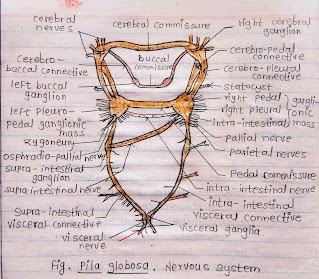 cerebral nerves
cerebral commissure
right cerebral ganglion
cerebro-pedal connective
buccal commissure
cerebro-buccal connective
cerebro-pleural connective
left buccal ganglion
statocyst
right pedal
right pleural
gangli-onic mass
intra-intestinal
left pleuro-Pedal ganglionic mass
pallial nerve
zygoneury
parietal nerves
osphradio-pallial nerve
supra-intestinal ganglion
Pedal commissure
supra intestinal nerve
intra-intestinal nerve
supra-intestinal visceral connective
intra-intestinal visceral connective
visceral ganglia
visceral nerve
Fig. Pila globosa. Nervous system